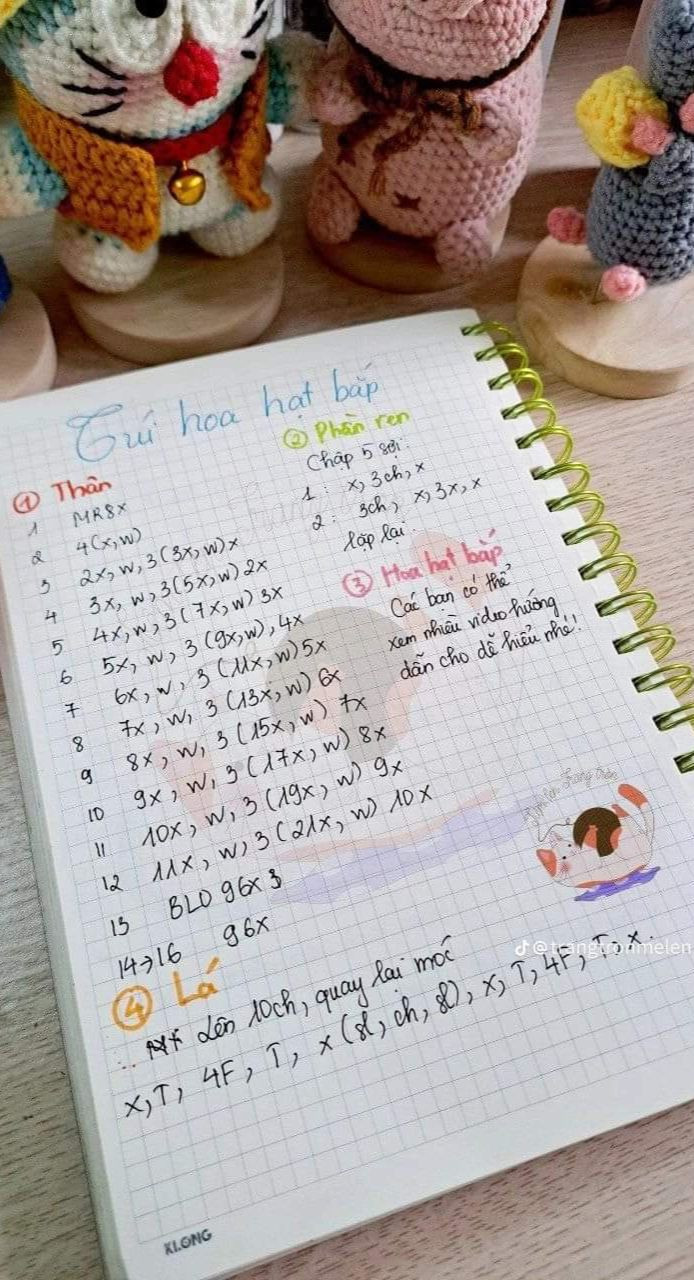 Túi hoa hạt bắp
① Thân
1 MR8X
2 4(x,w)
3 2x, w, 3(3x, w)x
4 3x, w, 3(5x, w) 2x
5 4x, w, 3(7x, w) 3x
6 5x, w, 3(9x, w), 4x
7 6x, w, 3(11x, w) 5x
8 7x, w, 3(13x, w) 6x
9 8x, w, 3(15x, w) 7x
10 9x, w, 3(17x, w) 8x
11 10x, w, 3(19x, w) 9x
12 11x, w, 3(21x, w) 10x
13 BLO 96x
14→16 96x
② Phần ren
Chập 5 sợi:
1: x, 3ch, x
2: 3ch, x, 3x, x
lặp lại
③ Hoa hạt bắp
Các bạn có thể
xem nhiều video hướng
dẫn cho dễ hiểu nhé!
④ Lá
lên 10ch, quay lại móc
x, T, 4F, T, x (sl, ch, sl), x, T, 4F, T, x.
@trangtronmelen
KLONG